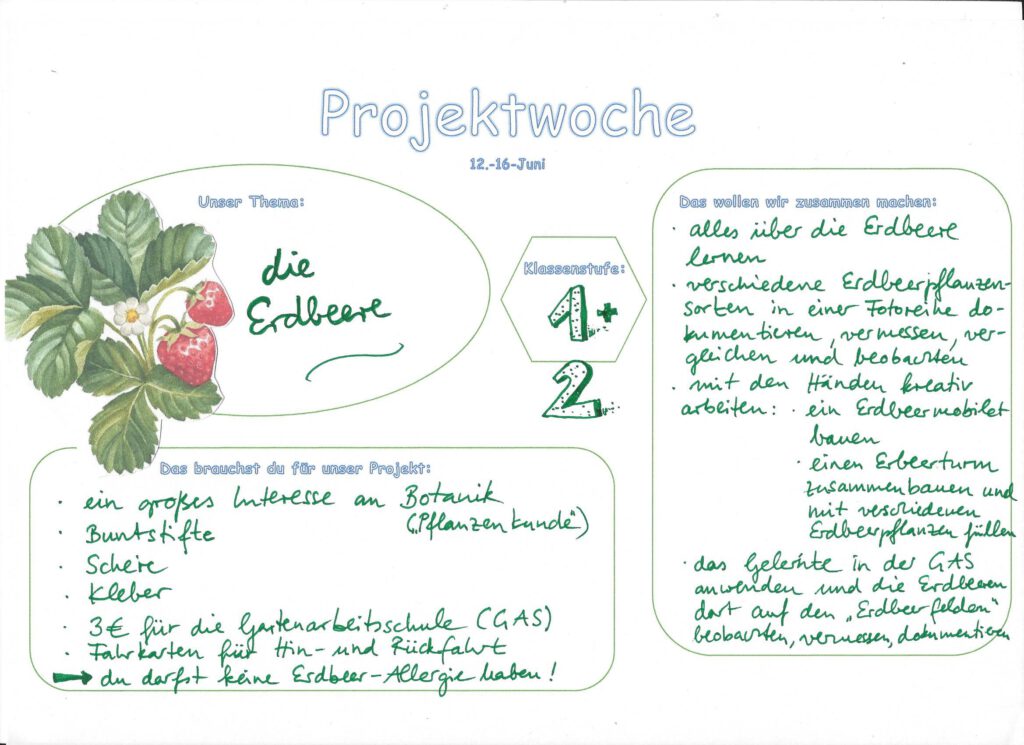 Projektwoche
12.-16-Juni
Unser Thema:
die
Erdbeere
Klassenstufe:
1+
2
Das brauchst du für unser Projekt:
· ein großes Interesse an Botanik
("Pflanzenkunde")
· Buntstifte
· Schere
· Kleber
· 3€ für die Gartenarbeitsschule (GAS)
· Fahrkarten für Hin- und Rückfahrt
→ du darfst keine Erdbeer-Allergie haben!
Das wollen wir zusammen machen:
· alles über die Erdbeere
lernen
· verschiedene Erdbeerpflanzen-
sorten in einer Fotoreihe do-
kumentieren, vermessen, ver-
gleichen und beobachten
· mit den Händen kreativ
arbeiten: · ein Erdbeermobilet
bauen
· einen Erbeerturm
zusammenbauen und
mit verschiedenen
Erdbeerpflanzen füllen
· das Gelernte in der GAS
anwenden und die Erdbeeren
dort auf den „Erdbeerfeldern"
beobachten, vermessen, dokumentieren